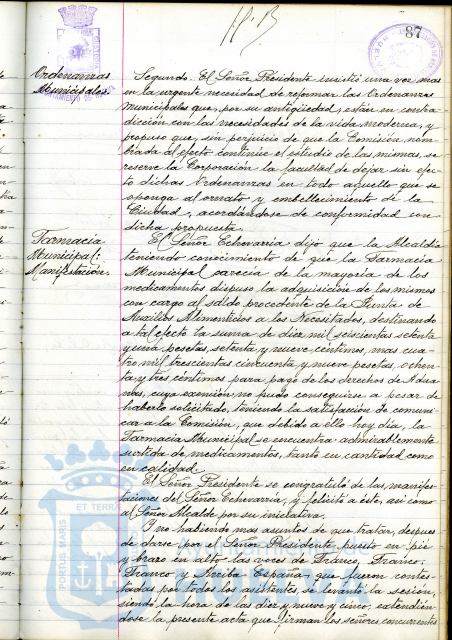 87
Ordenanzas
Municipales.
Segundo. El Señor Presidente insistió una vez mas
en la urgente necesidad de reformar las Ordenanzas
Municipales que, por su antigüedad, están en contra-
dicción con las necesidades de la vida moderna, y
propuso que, sin perjuicio de que la Comisión nom-
brada al efecto continúe el estudio de las mismas, se
reserve la Corporación la facultad de dejar sin efec-
to dichas Ordenanzas en todo aquello que se
oponga al ornato y embellecimiento de la
Ciudad, acordándose de conformidad con
dicha propuesta.
Farmacia
Municipal:
Manifestación.
El Señor Echevarria dijo que la Alcaldía
teniendo conocimiento de que la Farmacia
Municipal carecía de la mayoría de los
medicamentos dispuso la adquisición de los mismos
con cargo al saldo procedente de la Junta de
Auxilios Alimenticios a los Necesitados, destinando
a tal efecto la suma de diez mil seiscientas setenta
y una pesetas, setenta y nueve céntimos, mas cua-
tro mil trescientas cincuenta y nueve pesetas, ochen-
ta y tres céntimos para pago de los derechos de Adua-
nas, cuya exención no pudo conseguirse a pesar de
haberlo solicitado, teniendo la satisfacción de comuni-
car a la Comisión, que debido a ello hoy dia, la
Farmacia Municipal se encuentra admirablemente
surtida de medicamentos, tanto en cantidad como
en calidad.
El Señor Presidente se congratuló de las manifes-
taciones del Señor Echevarria, y felicitó a éste, así como
al Señor Alcalde por su iniciativa.
Y no habiendo mas asuntos de que tratar, despues
de darse por el Señor Presidente, puesto en pie
y brazo en alto las voces de Franco, Franco,
Franco y Arriba España, que fueron contes-
tadas por todos los asistentes se levantó la sesion,
siendo la hora de las diez y nueve y cinco, extendien-
dose la presente acta que firman los señores concurrentes
ET TERRA
PORTUS MARIS